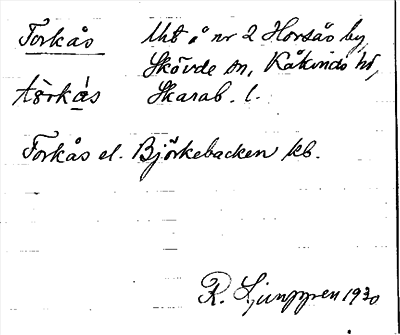 Torkås Utj å nr 2 Horsås by,
Skövde sn, Kåkinds hd,
tòrkás Skarab. l.
Torkås el. Björkebacken kb.
R. Ljunggren 1930